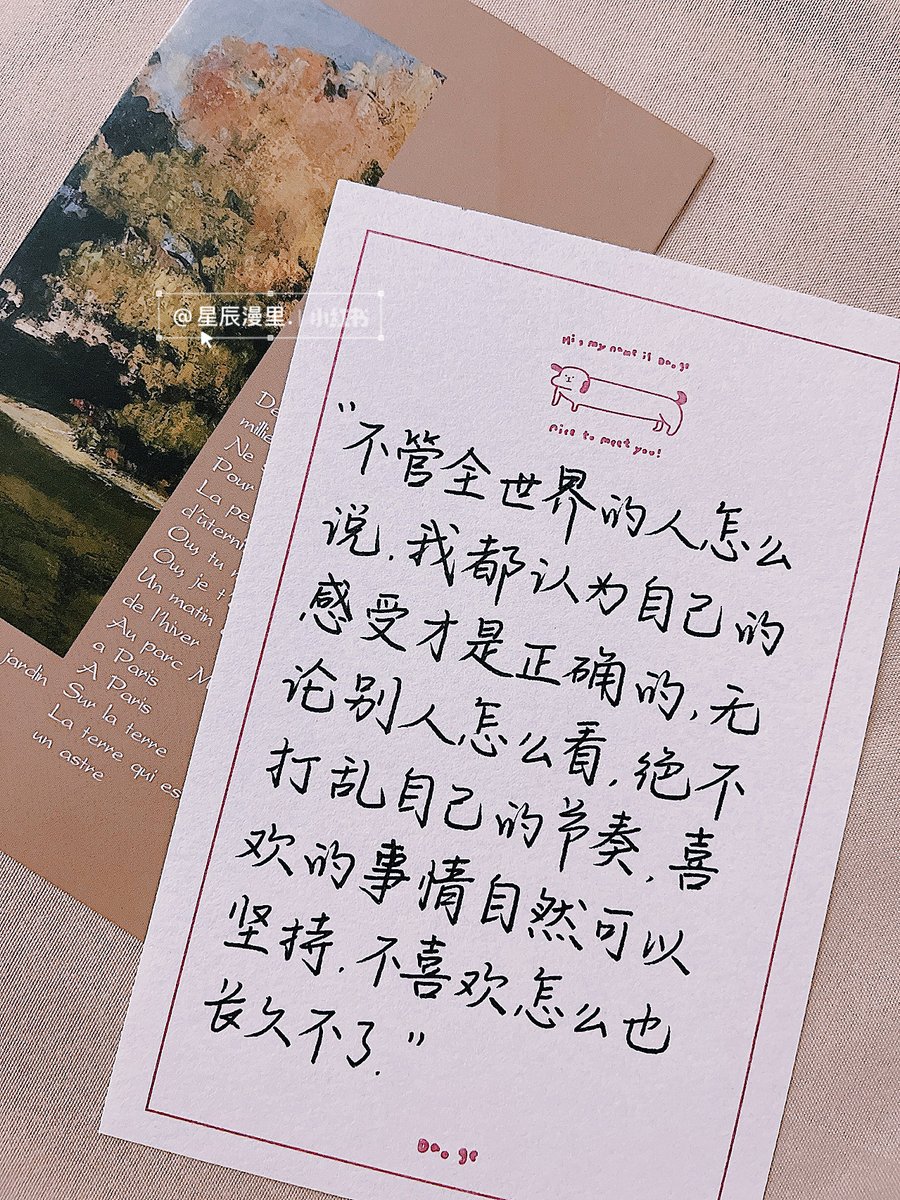 @星辰漫里. 小红书
Hi, my name is Da. ge
Nice to meet you!
"不管全世界的人怎么
说.我都认为自己的
感受才是正确的,无
论别人怎么看.绝不
打乱自己的节奏.喜
欢的事情自然可以
坚持.不喜欢怎么也
长久不了."
Da. ge
De
millie
Ne
Pour
La pe
d'úterni
Ous, tu
Ous, je t
Un matin
de l'hiver
Au parc M
a Paris
A Paris
jardin Sur la terre
La terre qui es
un astre